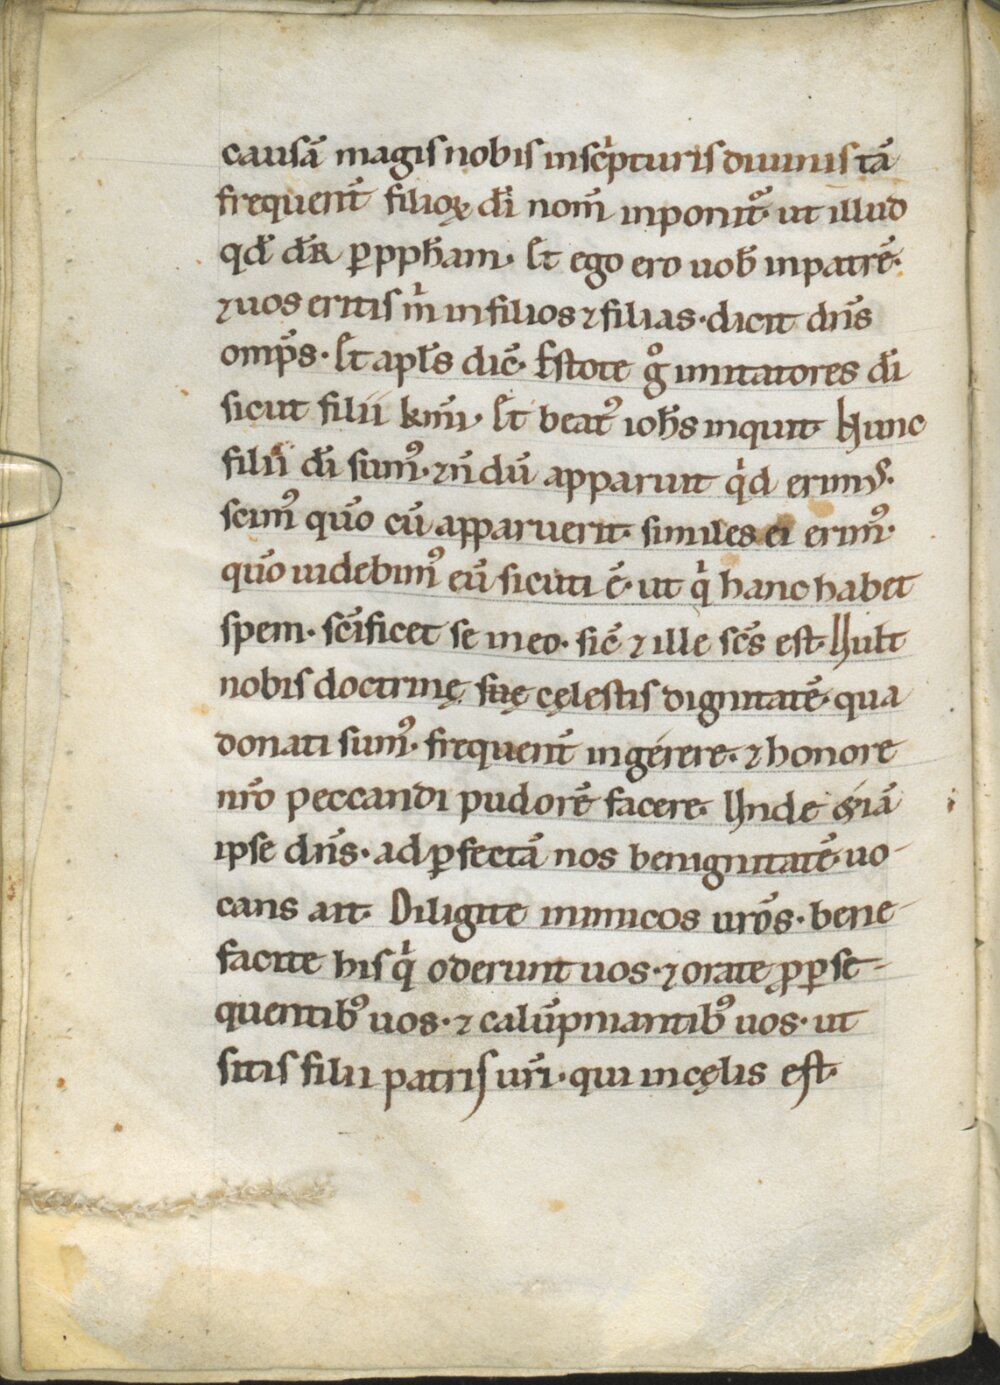 causā magis nobis inscͥpturis diuinis tā
frequent̄ filioꝝ dī nom̄ inponit᷑· ut illud
qd̄ dr̄ ꝑ ppħam· Et ego ero uob̄ inpatrē·
⁊ uos eritis m̄ in filios ⁊ filias· dicit dn̄s
omp̄s· Et apłs dic̄· Estote gͦ imitatores dī
sicut filii km̄i· Et beatꝰ ioħs inquit Nunc
filii dī sumꝰ· ⁊ n̄dū apparuit qͥd erimꝰ·
scimꝰ quō cū apparuerit· similes ei erimꝰ·
quō uidebimꝰ eū sicuti ē· ut qͥ hanc habet
spem· sc̄ificet se in eo· sic̄ ⁊ ille sc̄s est· Uult
nobis doctrinę suę cęlestis dignitatē· qua
donati sumꝰ· frequent̄ ingerere· ⁊ honore
nr̄o peccandi pudorē facere· Unde &iā
ipse dn̄s· ad ꝑfectā nos benignitatē uo-
cans ait· Diligite inimicos ur̄os· bene-
facite his qͥ oderunt uos· ⁊ orate ꝓ ꝑse-
quentibꝰ uos· ⁊ calūpniantibꝰ uos· ut
sitis filii patris ur̄i· qui in cęlis est·